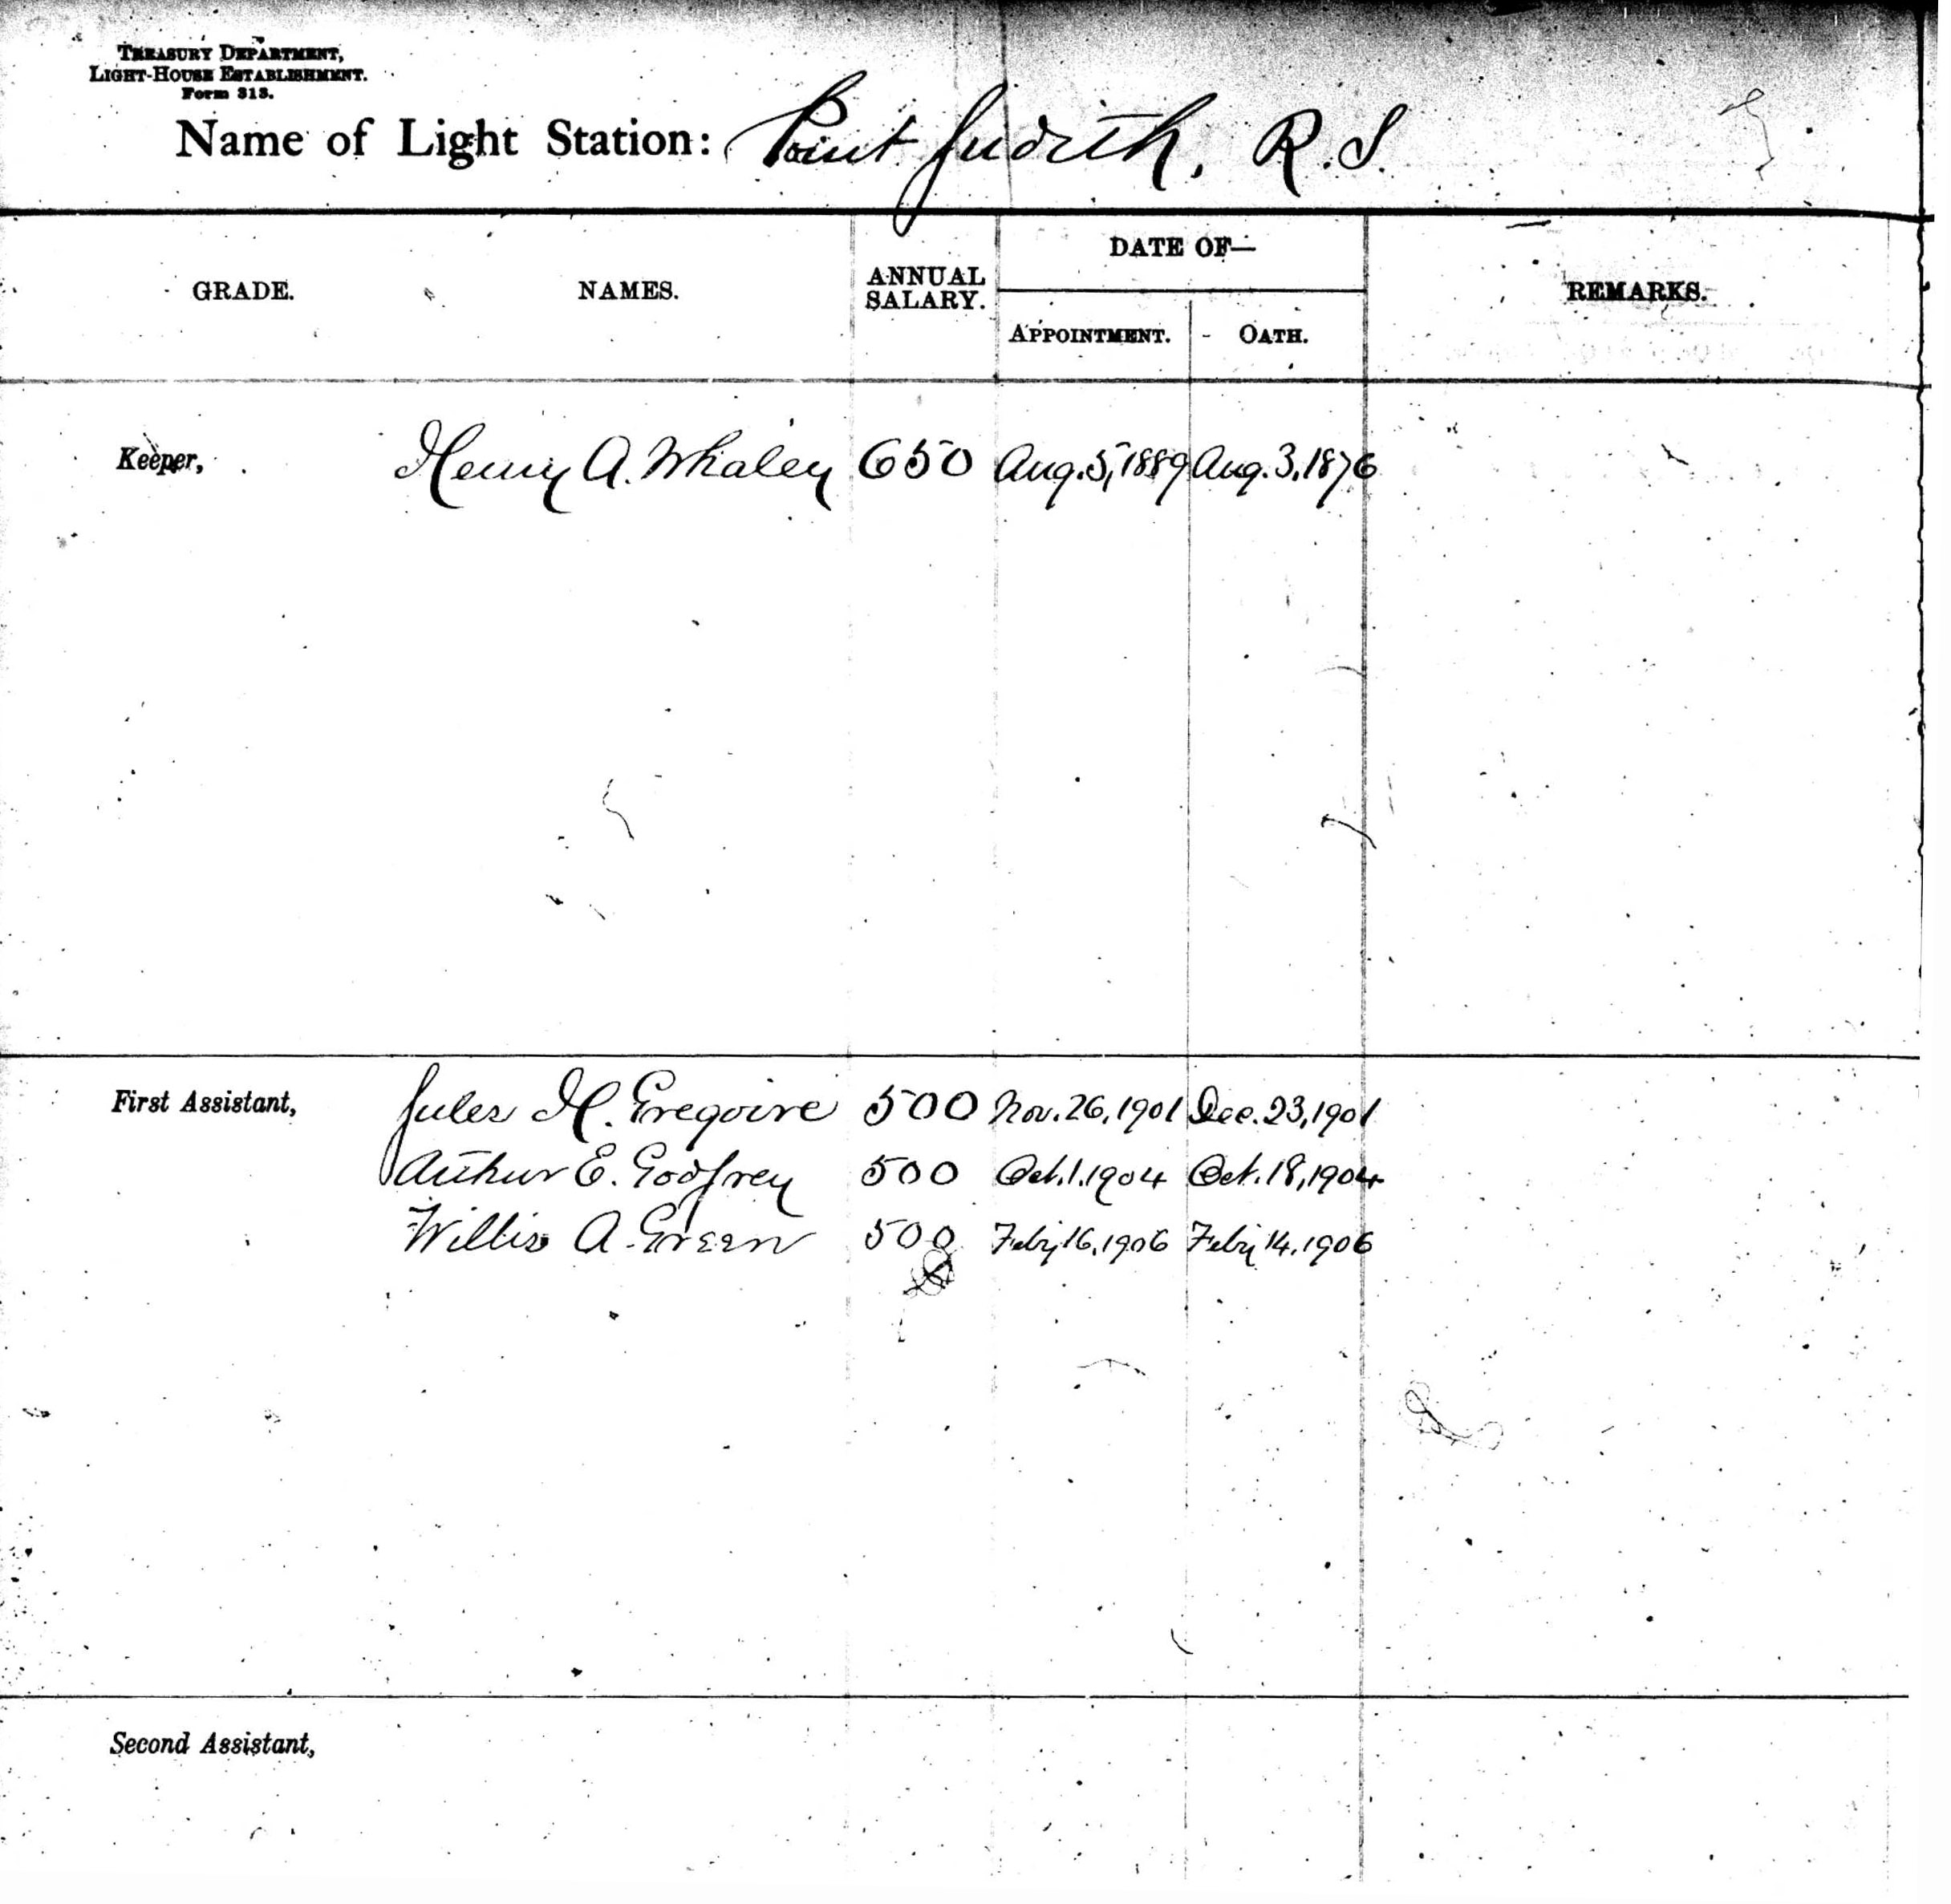 TREASURY DEPARTMENT,
LIGHT-HOUSE ESTABLISHMENT.
Form 313.
Name of Light Station: Point Judith, R.I.
GRADE. NAMES. ANNUAL SALARY. DATE OF— REMARKS.
APPOINTMENT. OATH.
Keeper, Henry A. Whaley 650 Aug. 5, 1889 Aug. 3, 1876
First Assistant, Jules H. Gregoire 500 Nov. 26, 1901 Dec. 23, 1901
Arthur E. Godfrey 500 Oct. 1. 1904 Oct. 18, 1904
Willis A. Green 500 Feby 16, 1906 Feby 14, 1906
Second Assistant,